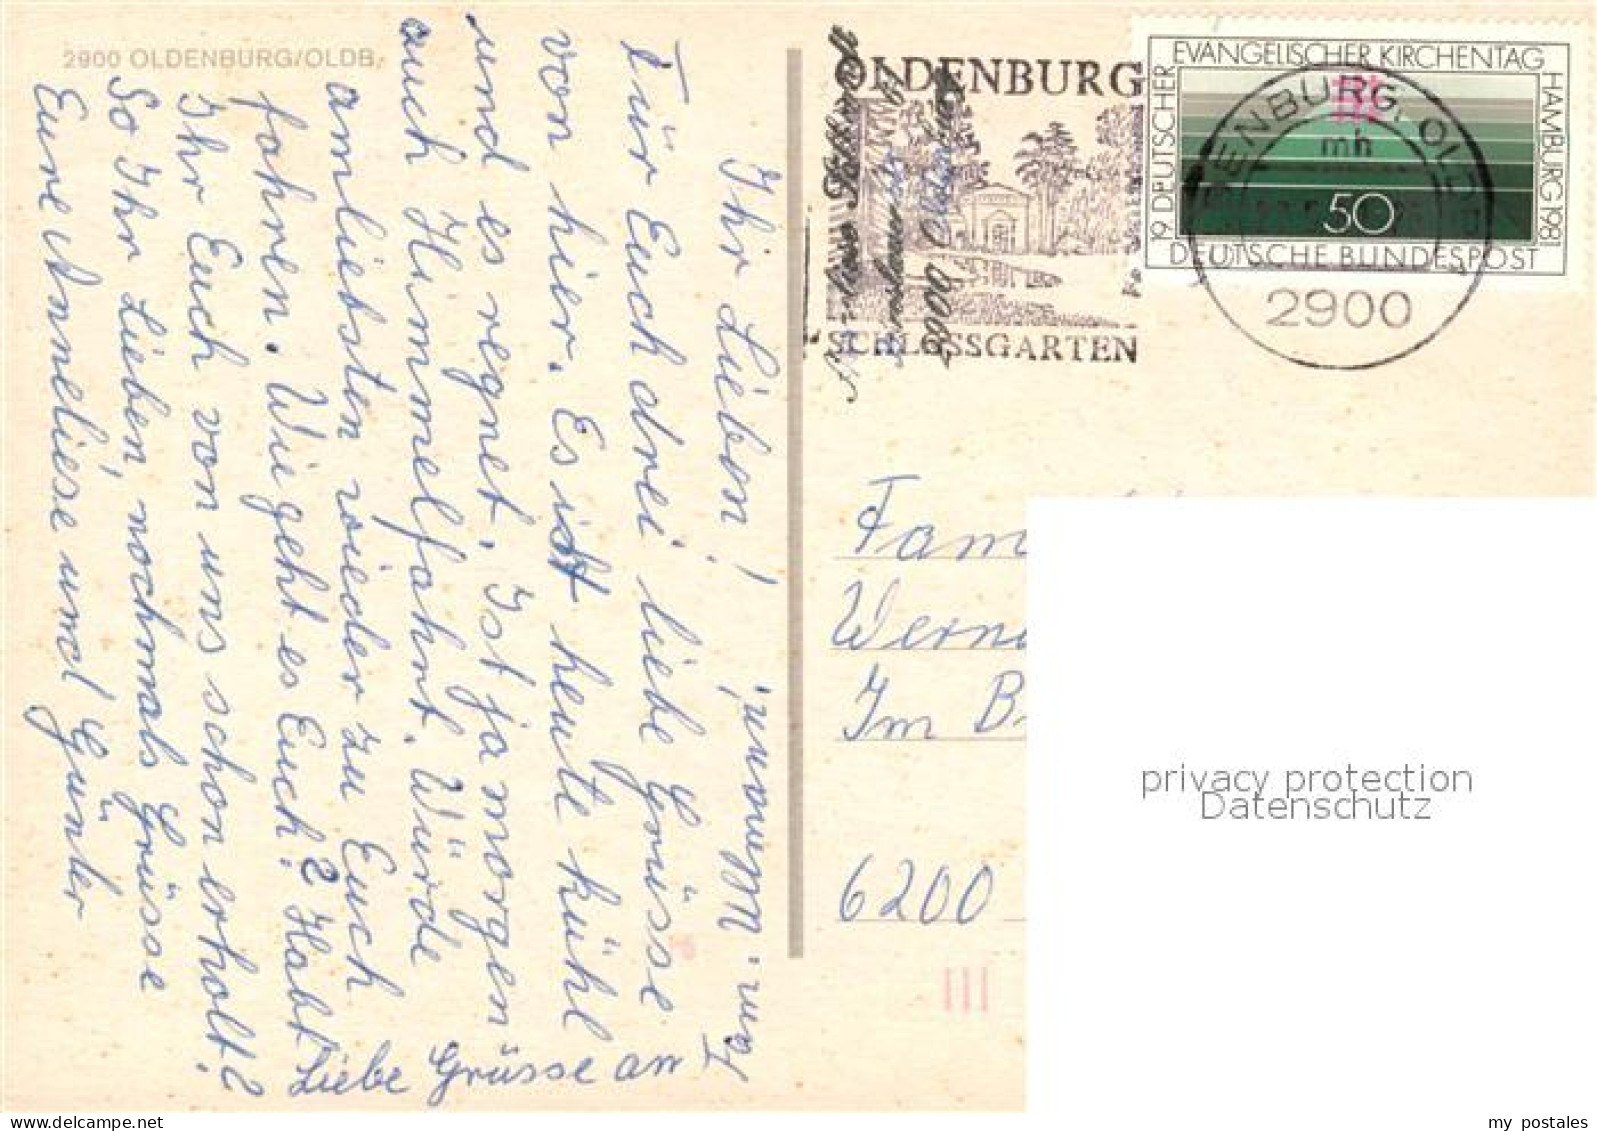 2900 OLDENBURG/OLDB.
Ihr Lieben!
Für Euch drei liebe Grüsse
von hier. Es ist heute kühl
und es regnet. Ist ja morgen
auch Himmelfahrt. Würde
amliebsten wieder zu Euch
fahren. Wie geht es Euch? Habt
Ihr Euch von uns schon erholt?
So Ihr Lieben, nochmals Grüsse
Eure Anneliese und Günter
Liebe Grüsse an
Fam.
OLDENBURG
SCHLOSSGARTEN
2900
19. DEUTSCHER
EVANGELISCHER KIRCHENTAG
HAMBURG 1981
50
DEUTSCHE BUNDESPOST
OLDENBURG, OLDB
mh
2900
Fam
Wern
Im B
6200
privacy protection
Datenschutz
my postales